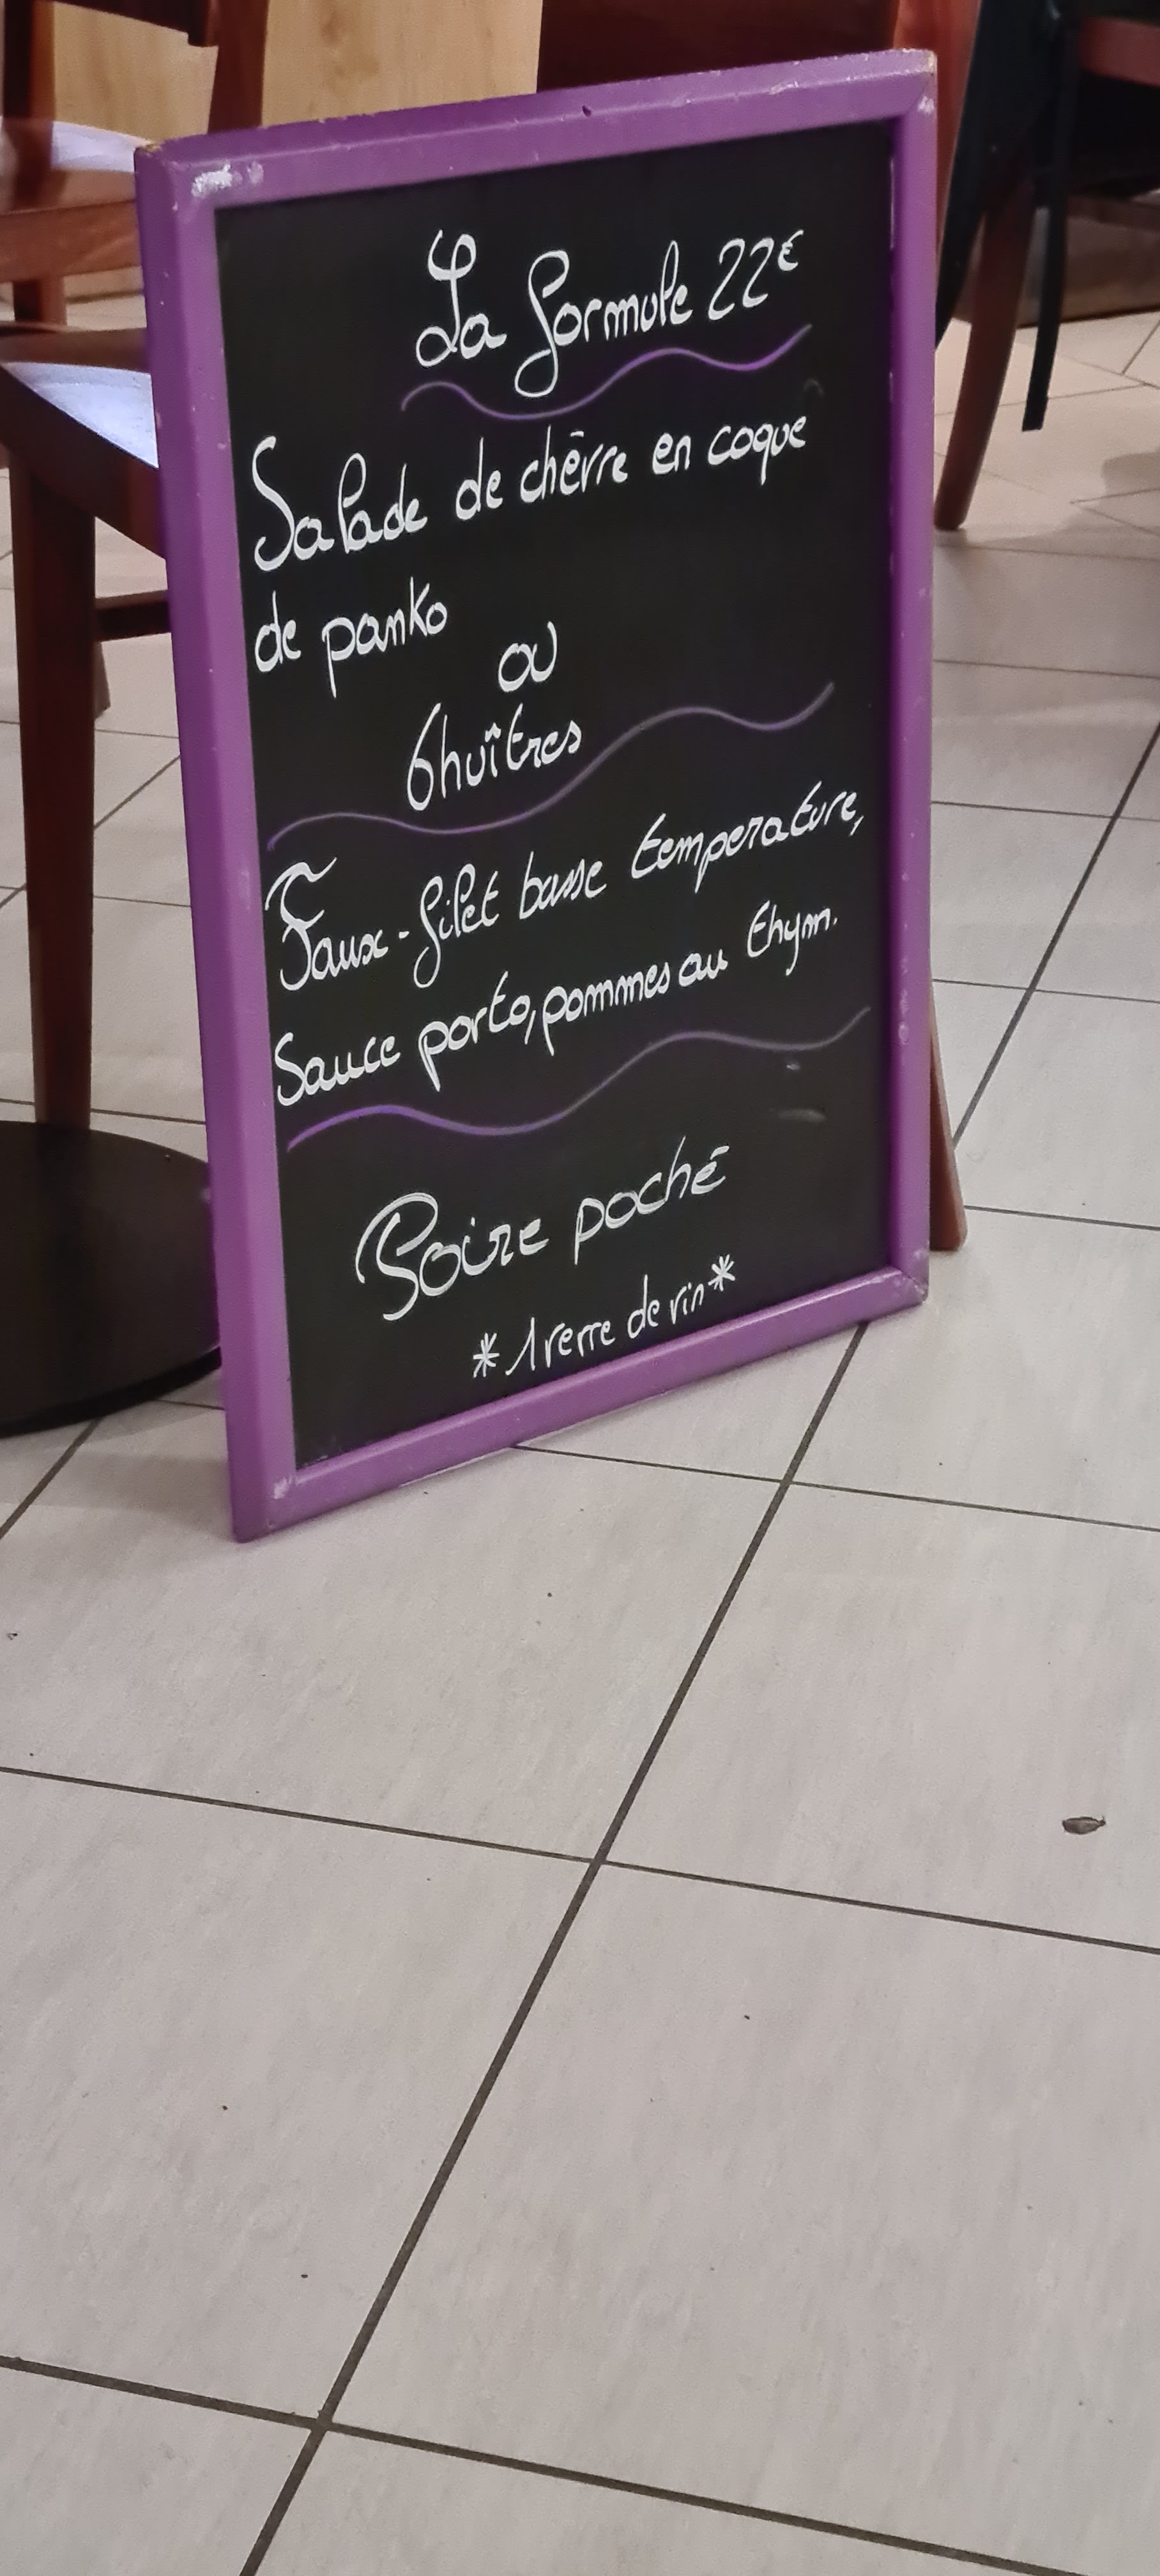 La formule 22€
Salade de chèvre en coque
de panko
ou
6 huîtres
Faux-filet basse temperature,
Sauce porto, pommes au thym.
Poire poché
*1 verre de vin*